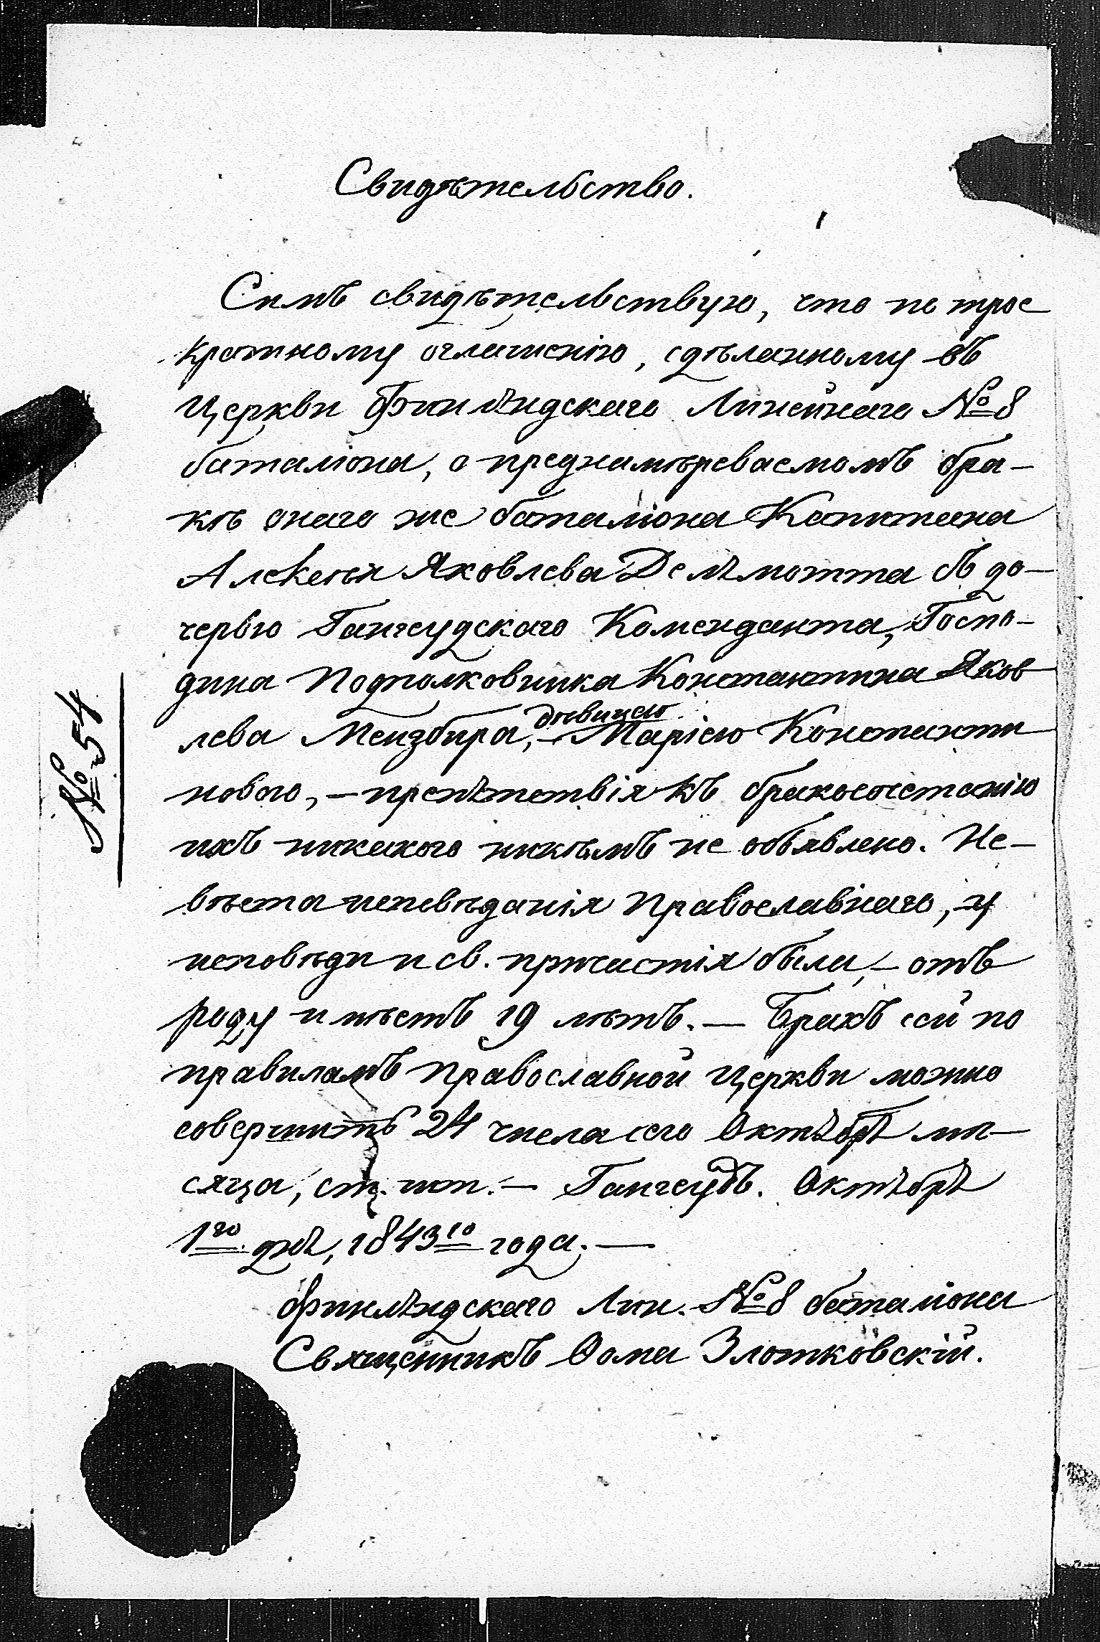 Свидѣтельство.
Симъ свидѣтельствую, что по трое
кратному оглашенію, сдѣланному въ
Церкви Финляндскаго Линейнаго № 8
баталіона, о преднамѣреваемомъ бра–
кѣ онаго же баталіона Капитана
Алексѣя Яковлева Делямотта съ до–
черью Гангеудскаго Коменданта, Госпо–
дина Подполковника Константина Яков
лева Мензбира, – дѣвицею Маріею Константи
новою, – препятствія къ бракосочетанію
ихъ никакого никѣмъ не объявлено. Не–
вѣста исповѣданія Православнаго, у
исповѣди и св. причастія была, – отъ
роду имѣетъ 19 лѣтъ. – Бракъ сей по
правиламъ Православной Церкви можно
совершить 24 числа сего Октября мѣ–
сяца, ст. шт. – Гангеудъ. Октября
1го дня, 1843го года. —
Финляндскаго Лин. № 8 баталіона
Священникъ Ѳома Злотковскій.
№ 54